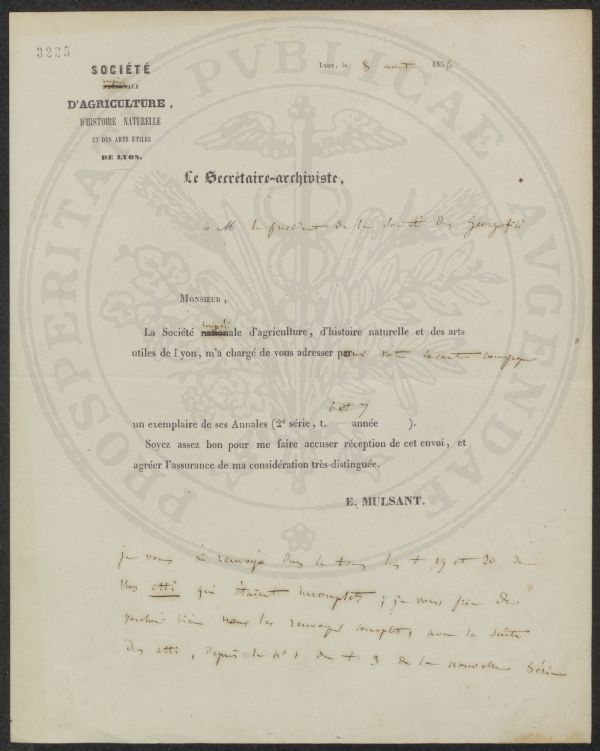 3225
SOCIÉTÉ
NATIONALE
D'AGRICULTURE,
D'HISTOIRE NATURELLE
ET DES ARTS UTILES
DE LYON.
LYON, le 8 aout 185
Le Secrétaire-archiviste,
à M le president de la société des Georgofili
MONSIEUR,
impéri
La Société nationale d'agriculture, d'histoire naturelle et des arts
utiles de Lyon, m'a chargé de vous adresser pour votre savante compagnie
6 et 7
un exemplaire de ses Annales (2e série, t. année ).
Soyez assez bon pour me faire accuser réception de cet envoi, et
agréer l'assurance de ma considération très-distinguée.
E. MULSANT.
je vous ai renvoyé dans le tems les t 19 et 20 de
vos atti qui étaient incomplets ; je vous prie de
vouloir bien nous les renvoyer complets, avec la suite
des atti, depuis le n° 1 du t. 3 de la nouvelle Série
PROSPERITATI PVBLICAE AVGENDAE